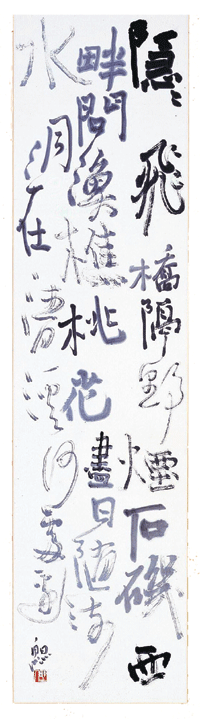 隱〻飛橋隔野煙石磯西
畔問漁樵桃花盡日随流
水洞在清溪何處邊